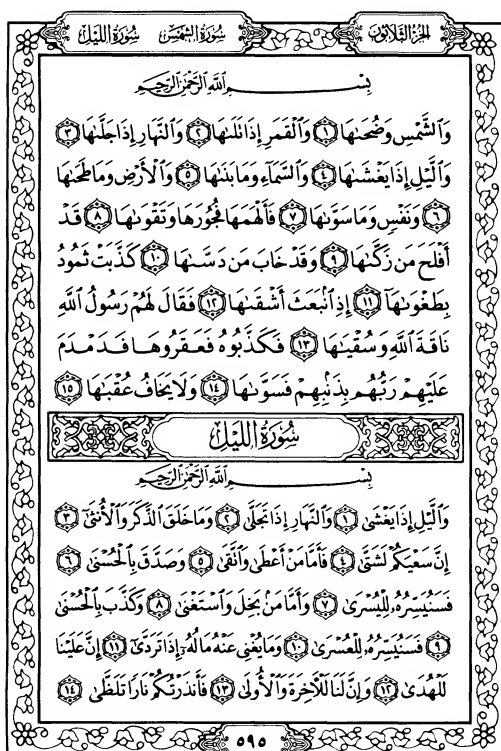 الجزء الثلاثون
سورة الشمس سورة الليل
بسم الله الرحمن الرحيم
وَالشَّمْسِ وَضُحَىٰهَا ١ وَالْقَمَرِ إِذَا تَلَىٰهَا ٢ وَالنَّهَارِ إِذَا جَلَّىٰهَا ٣
وَالَّيْلِ إِذَا يَغْشَىٰهَا ٤ وَالسَّمَاءِ وَمَا بَنَىٰهَا ٥ وَالْأَرْضِ وَمَا طَحَىٰهَا
٦ وَنَفْسٍ وَمَا سَوَّىٰهَا ٧ فَأَلْهَمَهَا فُجُورَهَا وَتَقْوَىٰهَا ٨ قَدْ
أَفْلَحَ مَن زَكَّىٰهَا ٩ وَقَدْ خَابَ مَن دَسَّىٰهَا ١٠ كَذَّبَتْ ثَمُودُ
بِطَغْوَىٰهَا ١١ إِذِ انۢبَعَثَ أَشْقَىٰهَا ١٢ فَقَالَ لَهُمْ رَسُولُ اللَّهِ
نَاقَةَ اللَّهِ وَسُقْيَٰهَا ١٣ فَكَذَّبُوهُ فَعَقَرُوهَا فَدَمْدَمَ
عَلَيْهِمْ رَبُّهُم بِذَنۢبِهِمْ فَسَوَّىٰهَا ١٤ وَلَا يَخَافُ عُقْبَٰهَا ١٥
سورة الليل
بسم الله الرحمن الرحيم
وَالَّيْلِ إِذَا يَغْشَىٰ ١ وَالنَّهَارِ إِذَا تَجَلَّىٰ ٢ وَمَا خَلَقَ الذَّكَرَ وَالْأُنثَىٰ ٣
إِنَّ سَعْيَكُمْ لَشَتَّىٰ ٤ فَأَمَّا مَنْ أَعْطَىٰ وَاتَّقَىٰ ٥ وَصَدَّقَ بِالْحُسْنَىٰ ٦
فَسَنُيَسِّرُهُۥ لِلْيُسْرَىٰ ٧ وَأَمَّا مَنۢ بَخِلَ وَاسْتَغْنَىٰ ٨ وَكَذَّبَ بِالْحُسْنَىٰ
٩ فَسَنُيَسِّرُهُۥ لِلْعُسْرَىٰ ١٠ وَمَا يُغْنِي عَنْهُ مَالُهُۥ إِذَا تَرَدَّىٰ ١١ إِنَّ عَلَيْنَا
لَلْهُدَىٰ ١٢ وَإِنَّ لَنَا لَلْآخِرَةَ وَالْأُولَىٰ ١٣ فَأَنذَرْتُكُمْ نَارًا تَلَظَّىٰ ١٤
٥٩٥